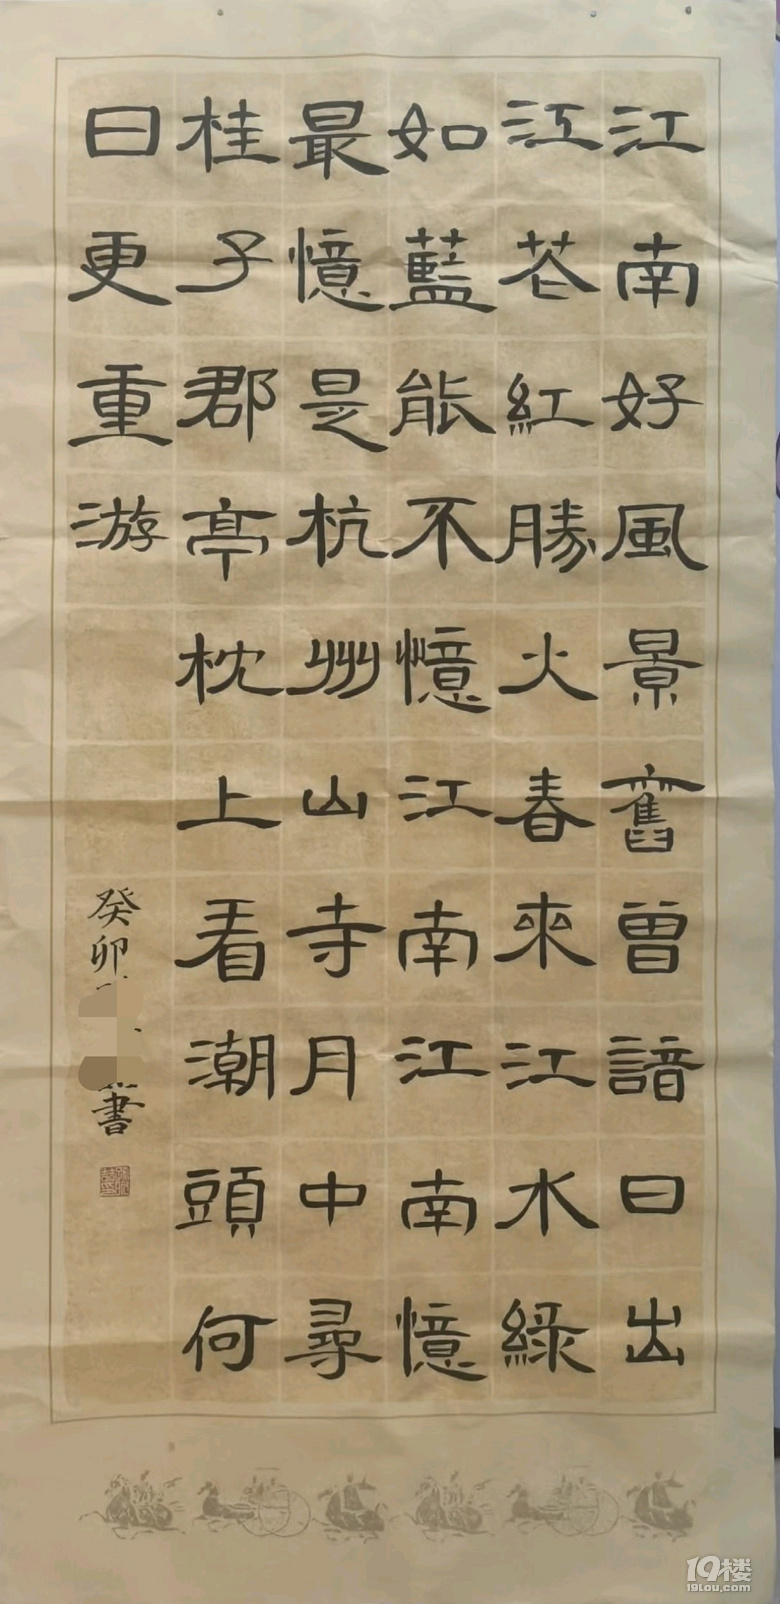 江南好風景舊曾諳日出
江花紅勝火春來江水綠
如藍能不憶江南江南憶
最憶是杭州山寺月中尋
桂子郡亭枕上看潮頭何
日更重游
癸卯
書
19楼
19lou.com